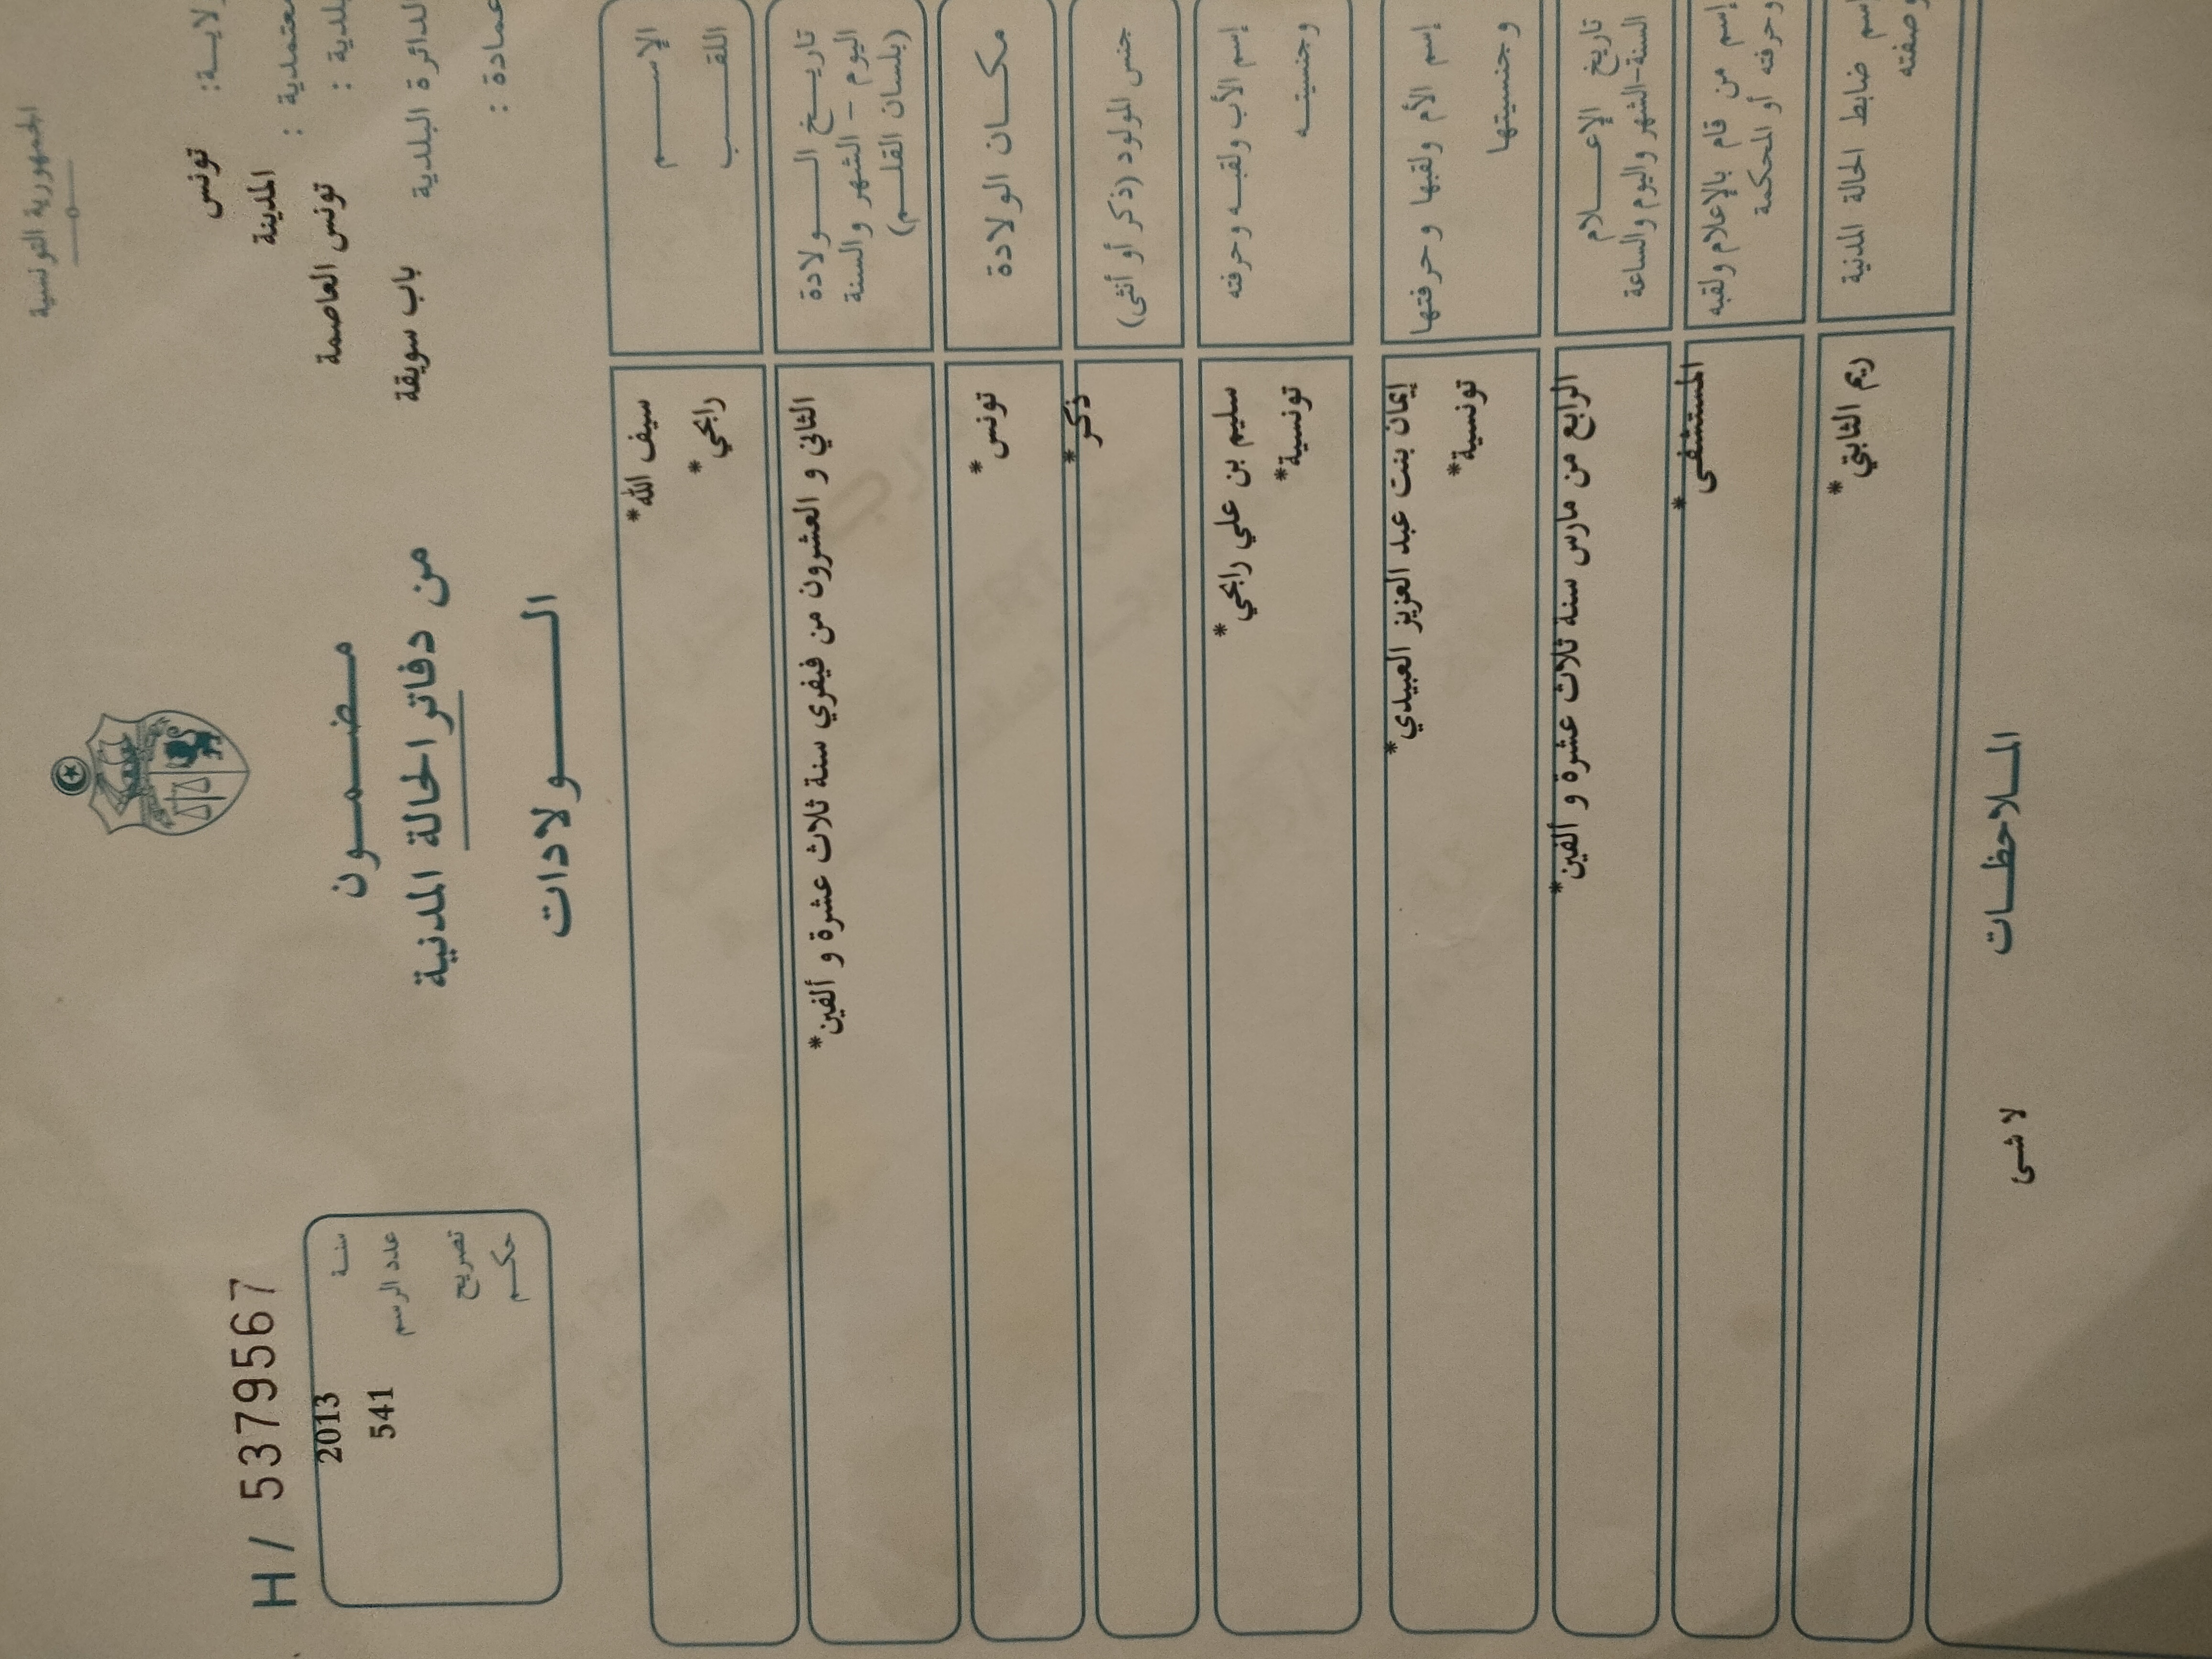 الجمهورية التونسية
ولايـة: تونس
معتمدية : المدينة
بلدية : تونس العاصمة
الدائرة البلدية باب سويقة
عمادة :
مـضـمـون
من دفاتر الحالة المدنية
الـولادات
H/ 5379567
سنة 2013
عدد الرسم 541
تصريح
حكم
الإسـم سيف الله*
اللقـب رابحي*
تاريـخ الـولادة
اليوم - الشهر والسنة
(بلسان القلـم)
الثاني و العشرون من فيفري سنة ثلاث عشرة و ألفين*
مكـان الولادة تونس*
جنس المولود (ذكر أو أنثى) ذكر*
إسم الأب ولقبـه وحرفته سليم بن علي رابحي*
وجنسيتـه تونسية*
إسم الأم ولقبها وحرفتها إيمان بنت عبد العزيز العبيدي*
وجنسيتها تونسية*
تاريخ الإعـلام
السنة-الشهر واليوم والساعة
الرابع من مارس سنة ثلاث عشرة و ألفين*
إسم من قام بالإعلام ولقبه
وحرفته أو المحكمة
المستشفى*
إسم ضابط الحالة المدنية
وصفته
ريم الثابتي*
المـلاحظـات
لا شئ